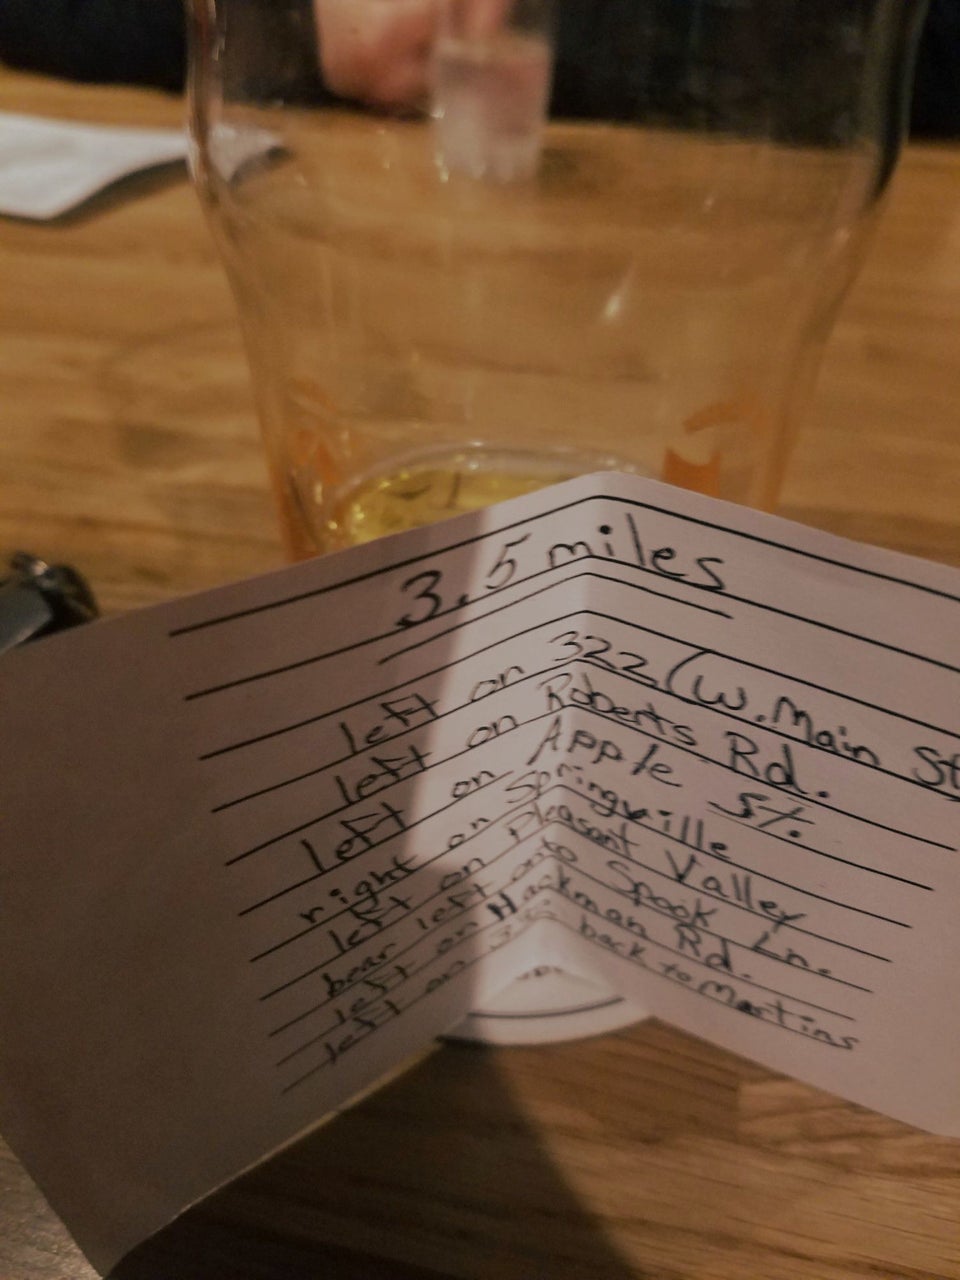 3.5 miles
left on 322 (W. Main St
left on Roberts Rd.
left on Apple St.
right on Springville
left on Pleasant Valley
bear left onto Spook Ln.
left on Hackman Rd.
left on back to Martins